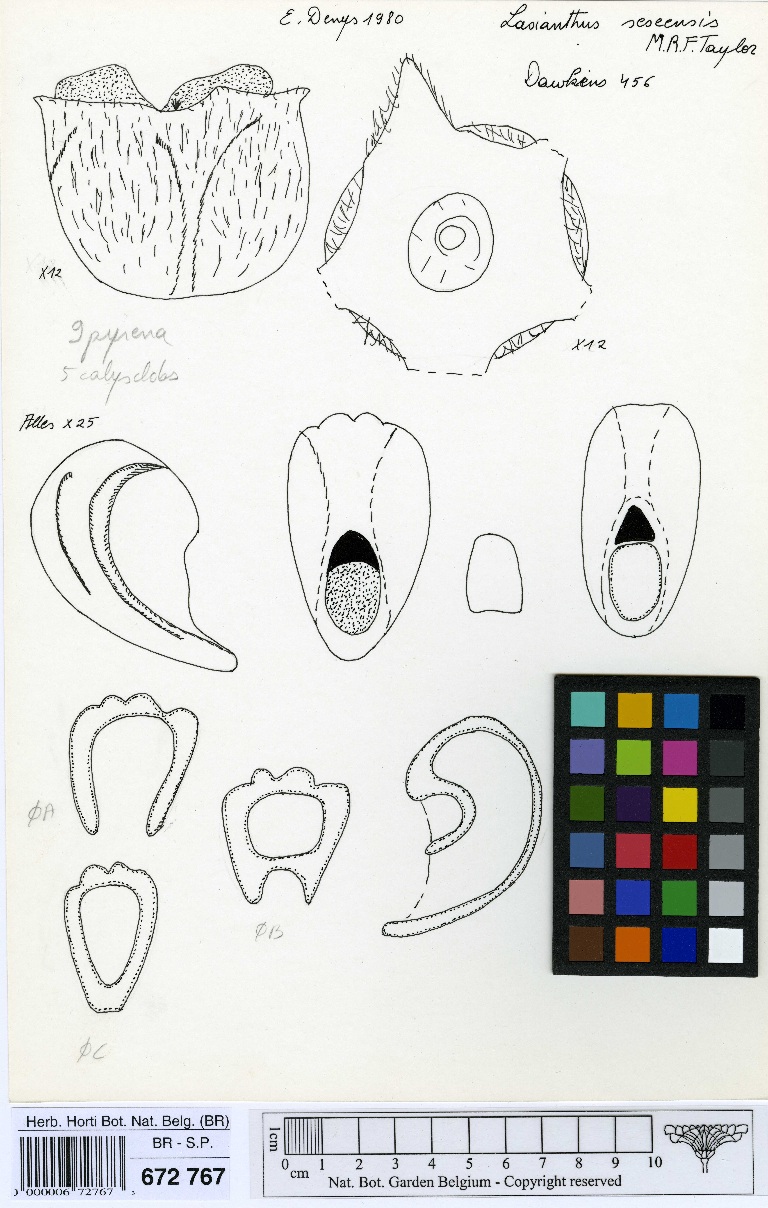 E. Denys 1980
Lasianthus seseensis
M.R.F. Taylor
Dawkins 456
X12
9 pyrena
5 calyxlobs
X12
Alles X25
ØA
ØB
ØC
Herb. Horti Bot. Nat. Belg. (BR)
BR - S.P.
672 767
0 000006 72767
1cm
0 1 2 3 4 5 6 7 8 9 10
cm
Nat. Bot. Garden Belgium - Copyright reserved